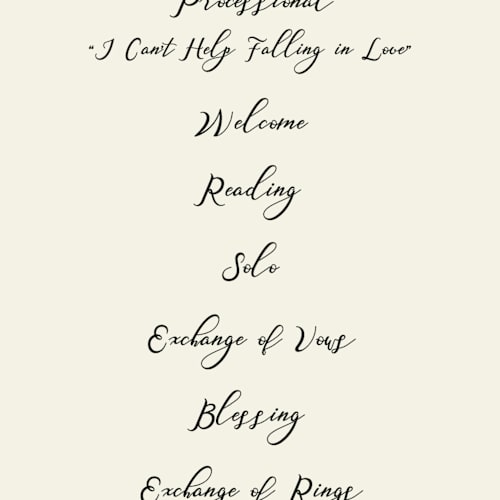 Processional
“I Can't Help Falling in Love”
Welcome
Reading
Solo
Exchange of Vows
Blessing
Exchange of Rings